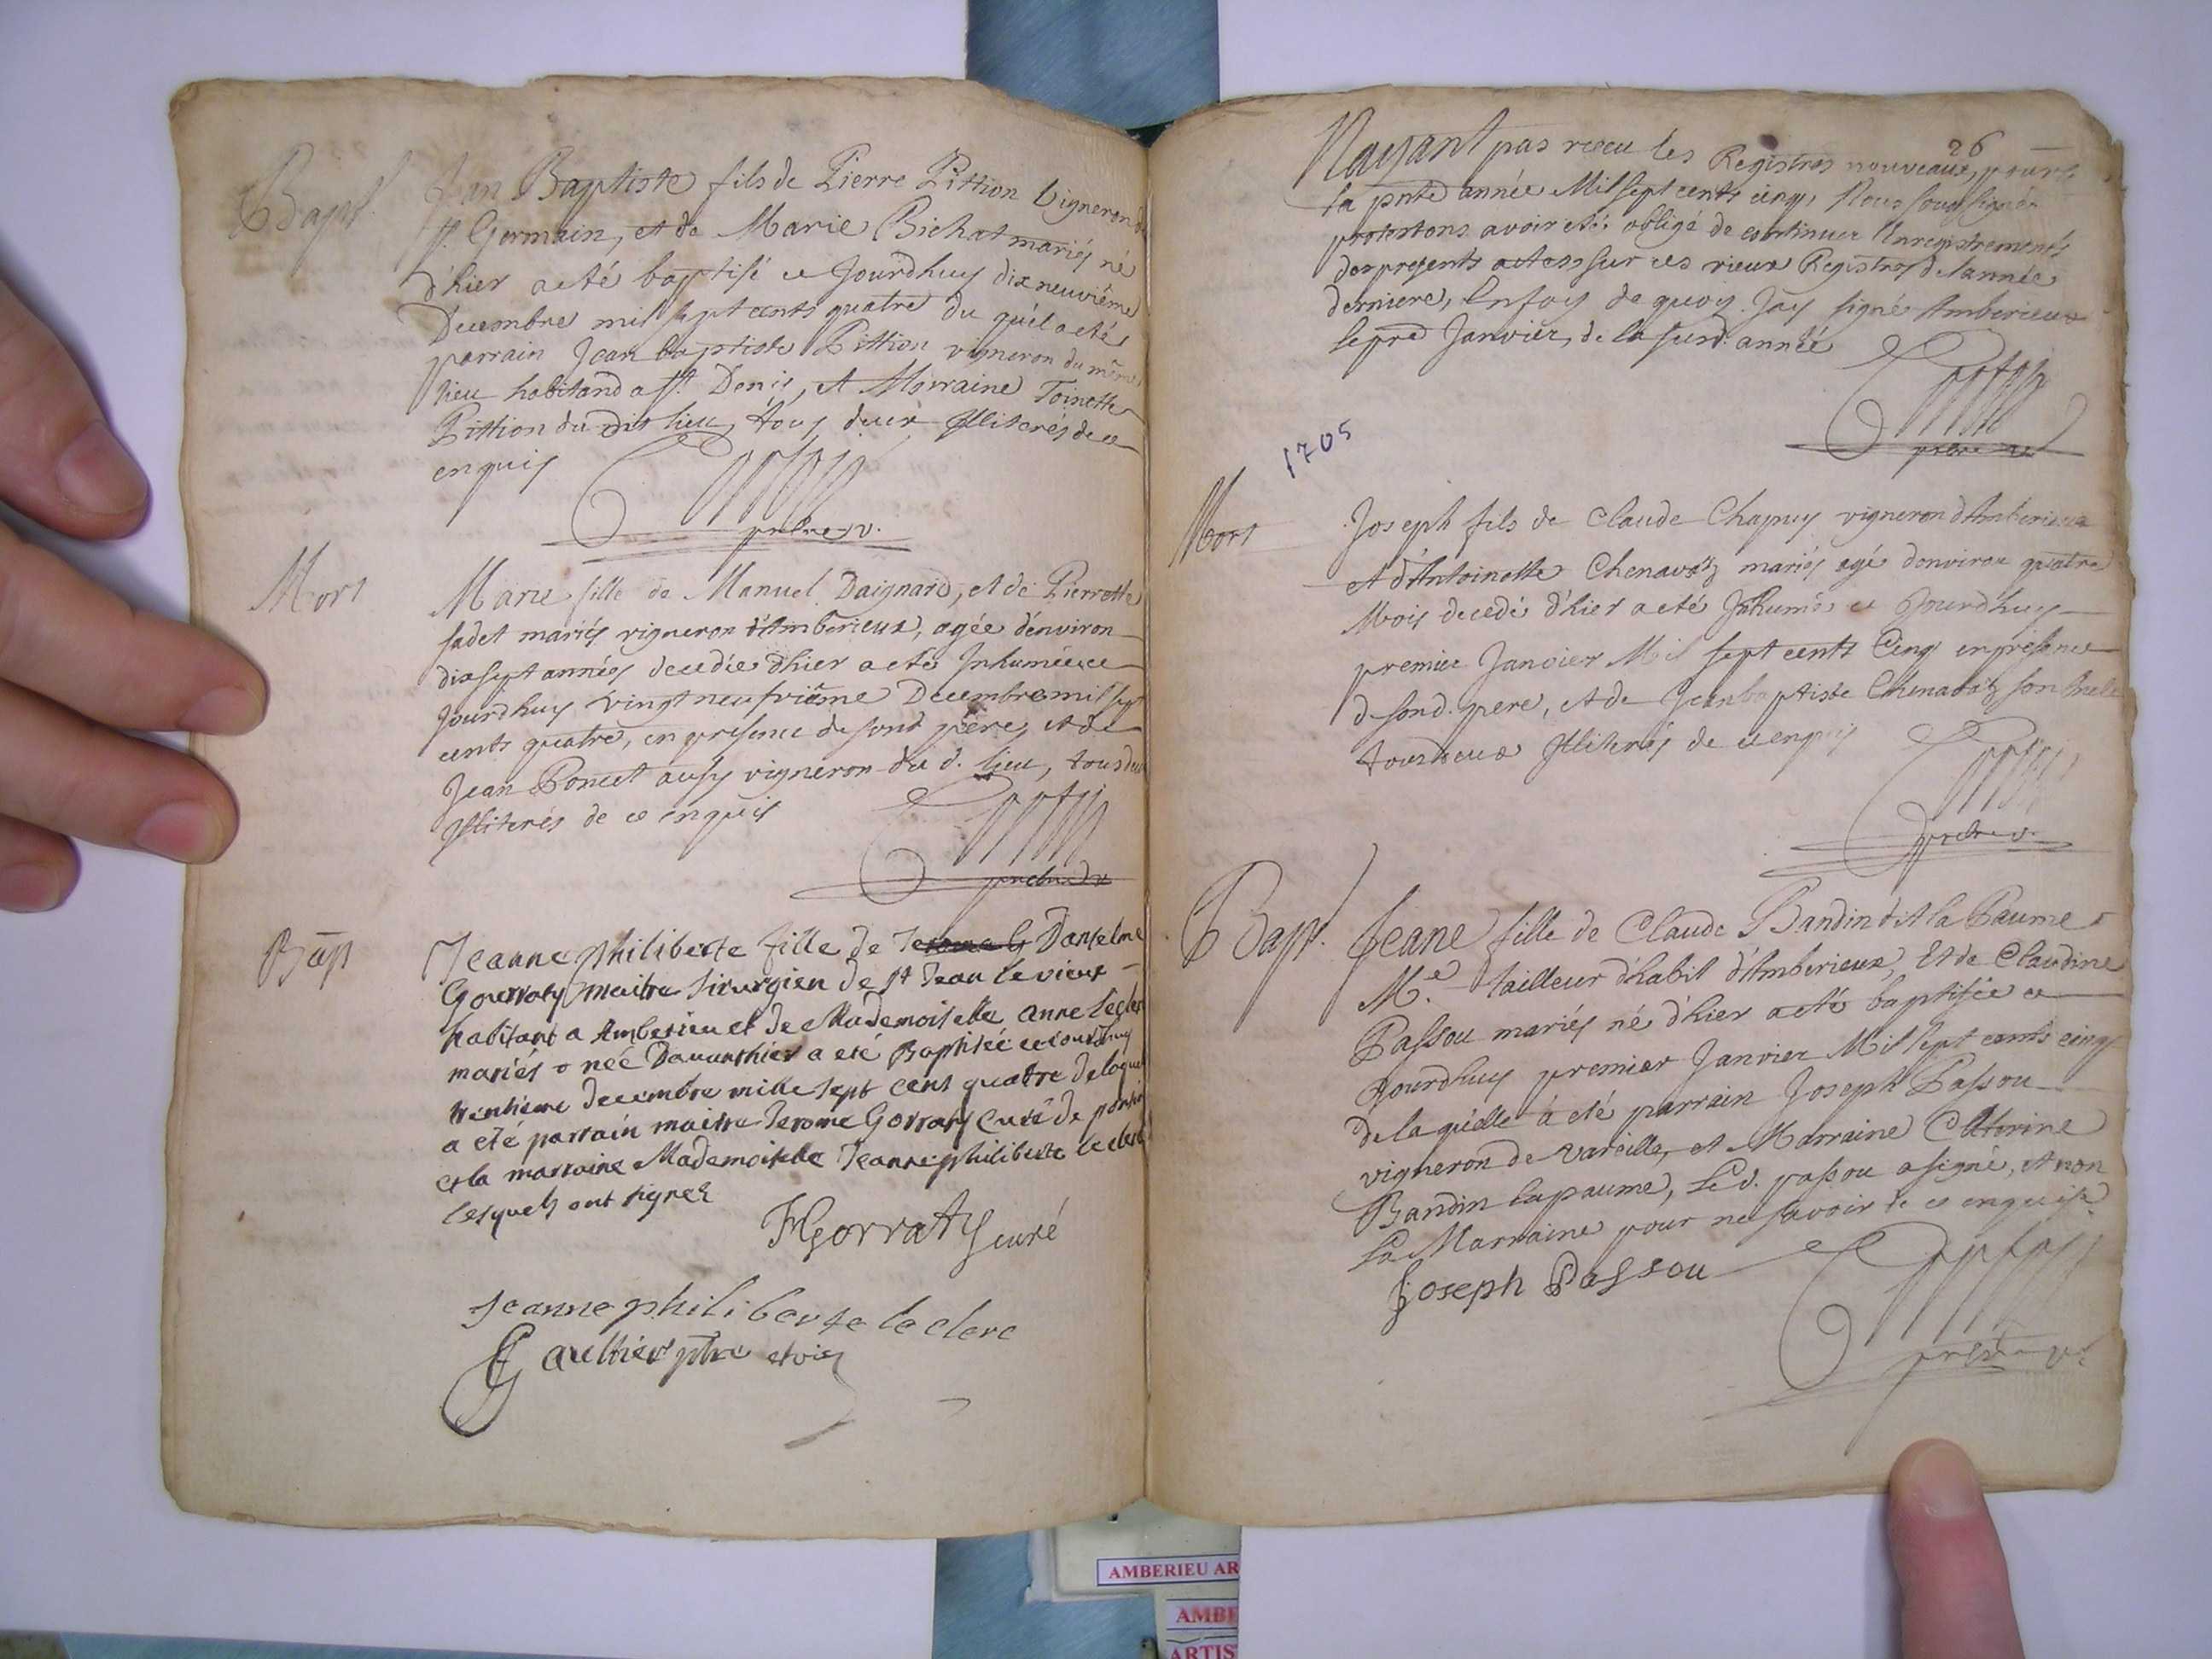 Bapt.
Jean Baptiste fils de Pierre Pittion vigneron de
St. Germain, et de Marie Bichat mariés né
d'hier a eté baptisé ce Jourdhuy dixneuviême
Decembre mil sept cents quatre du quel a eté
parrain Jean baptiste Pittion vigneron du même
lieu habitand a St. Denis, et Marraine Toinette
Pittion du dit lieu, tous deux Illiterés de ce
enquis
prebre v.
Mort
Marie fille de Manuel Daignard, et de Pierrette
fadet mariés vigneron d'Amberieux, agée d'environ
dix sept années decedée d'hier a eté Inhumée ce
Jourdhuy vingt neufviême Decembre mil sept
cents quatre, en presence de sond père, et de
Jean Poncet aussy vigneron du d. lieu, tous deux
Illiterés de ce enquis
prebre v
Bap
Jeanne philiberte fille de Danselme
Gorraty maitre sirurgien de st Jean le vieux
habitant a Amberieu et de Mademoiselle anne leclerc
mariés née Davanthier a eté Baptisée ce jourdhuy
trentieme decembre mille sept cent quatre de laquel
a eté parrain maitre Jerome Gorraty curé de
et la marraine Mademoiselle Jeanne philiberte leclerc
lesquels ont signez
Gorraty curé
Jeanne philiberte leclerc
Gaultier ptre et vic
26
Nayant pas receu les Registres nouveaux, pour
la pnte année Mil sept cents cinq, Nous soussignés
protestons avoir eté obligé de continuer l'enregistrements
des presents actes sur ces vieux Registres de lannée
derniere, En foy de quoy Jay signé Amberieux
le pre Janvier, de la susd. année
prebre
1705
Mort
Joseph fils de Claude Chapuy vigneron d'Amberieux
et d'Antoinette Chenavatz mariés agé d'environ quatre
Mois decedé d'hier a eté Inhumé ce Jourd'huy
premier Janvier Mil sept cents Cinq en presence
de sond. pere, et de Jean baptiste Chenavatz son
tous deux Illiterés de ce enquis
prebre v.
Bapt.
Jeane fille de Claude Bandin dit la Paume
Me. tailleur d'habit d'Amberieux, Et de Claudine
Passou mariés né d'hier a eté baptisée ce
Jourdhuy premier Janvier Mil sept cents cinq
de la quelle a eté parrain Joseph Passou
vigneron de vareille, et Marraine Catherine
Bandin lapaume, Le d. passou a signé, et non
La Marraine pour ne savoir de ce enquise
Joseph Passou
prebre v.
AMBERIEU AR
AMBE
ARTIS